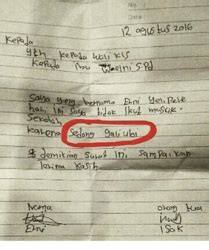 12 agustus 2016
Kepada
Yth kepada wali kls
Kepada ibu
S.Pd
Saya yang bernama Elni
hari ini saya tidak ikut masuk
Sekolah
karena sedang gali ubi
demikian surat ini sampaikan
terima kasih
Nama
orang tua
Elni
Isak